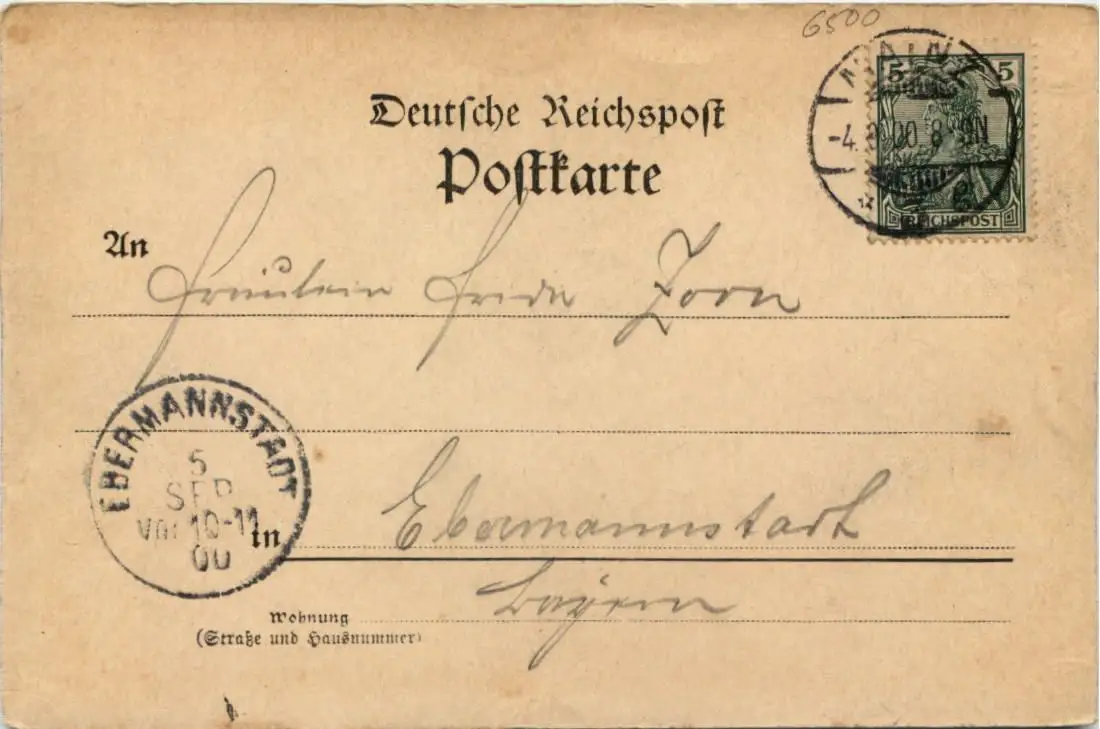 6500
MAINZ
5 5
-4.9.00. 8-9N
REICHSPOST
Deutsche Reichspost
Postkarte
An
Fräulein Frida Zorn
EBERMANNSTADT
5
SEP
Vor 10-11
00
in
Ebermannstadt
Bayern
Wohnung
(Straße und Hausnummer)